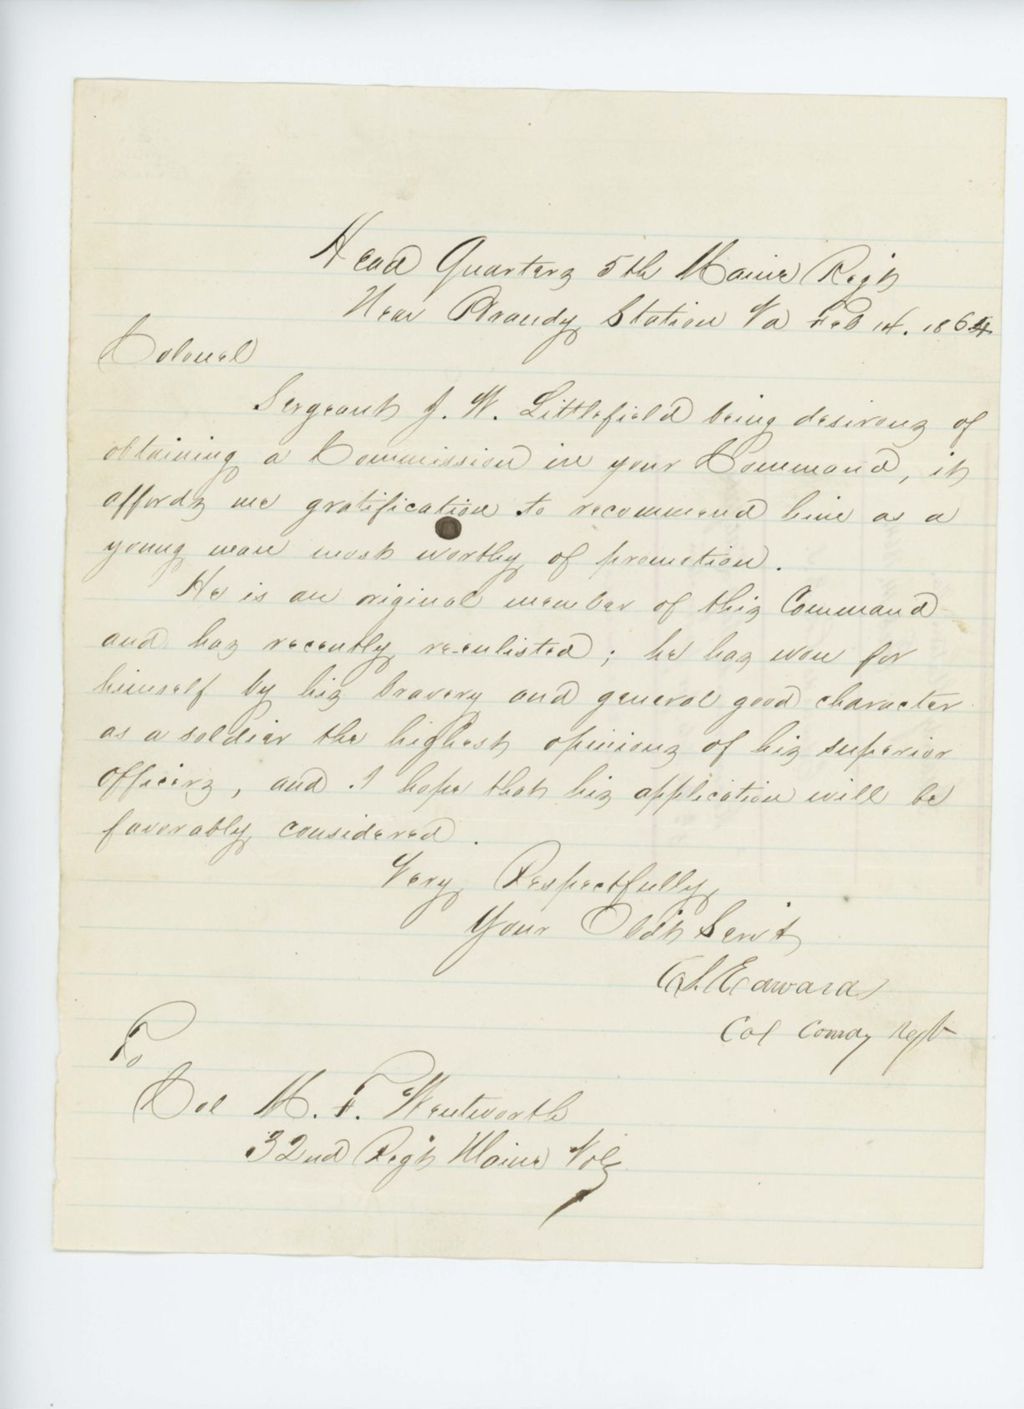 Head Quarters 5th Maine Reg't
Near Brandy Station Va Feb 14. 1864
Colonel
Sergeant J. W. Littlefield being desirous of
obtaining a Commission in your Command, it
affords me gratification to recommend him as a
young man most worthy of promotion.
He is an original member of this Command
and has recently re-enlisted; he has won for
himself by his bravery and general good character
as a soldier the highest opinions of his superior
officers, and I hope that his application will be
favorably considered.
Very Respectfully
Your Obd't Serv't
C S Edwards
Col Comdg Regt
To
Col M. F. Wentworth
32nd Reg't Maine Vols